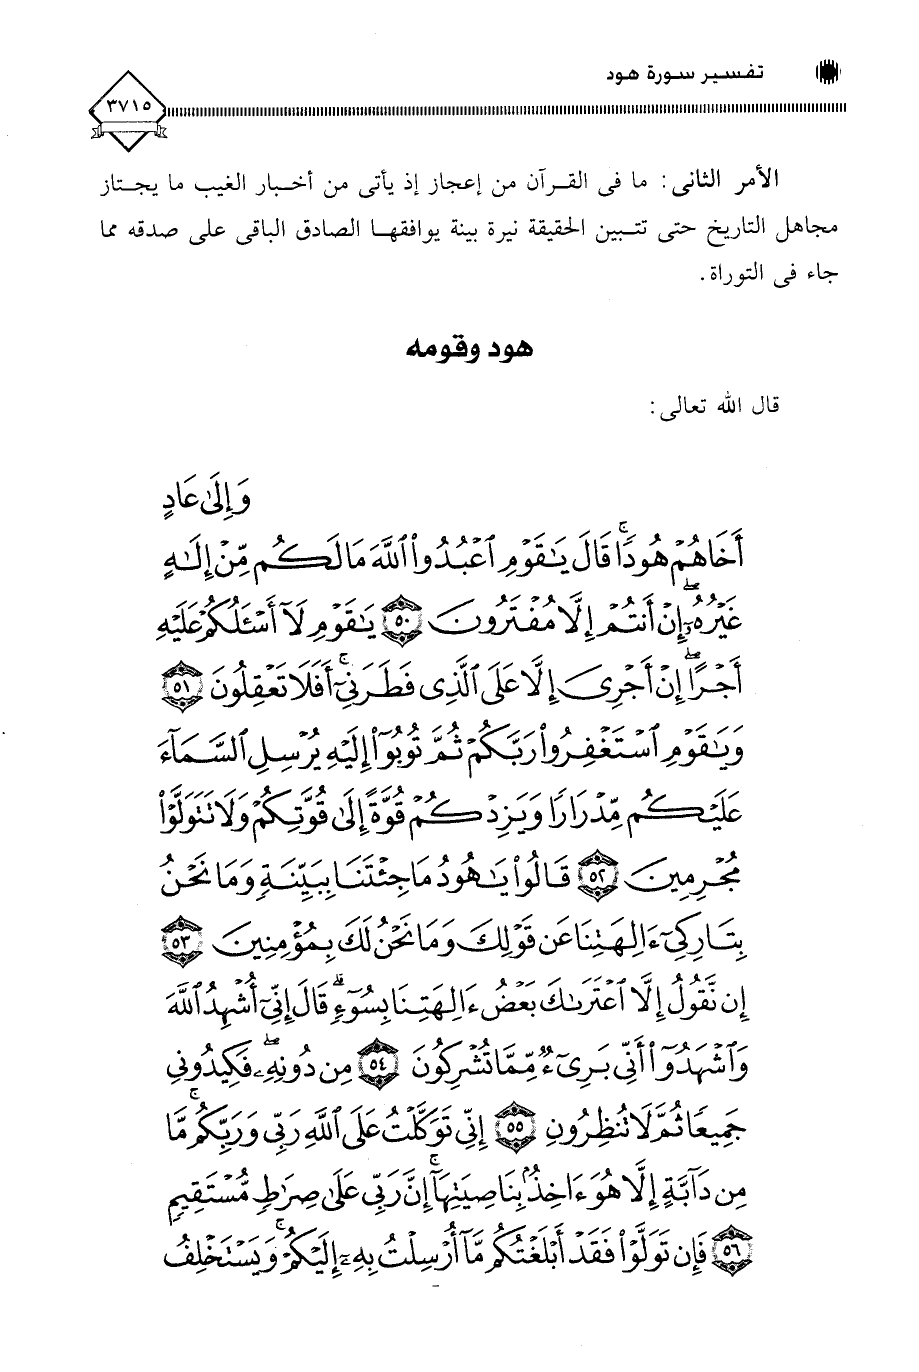 تفسير سورة هود
٣٧١٥
الأمر الثانى: ما فى القرآن من إعجاز إذ يأتى من أخبار الغيب ما يجتاز
مجاهل التاريخ حتى تتبين الحقيقة نيرة بينة يوافقها الصادق الباقى على صدقه مما
جاء فى التوراة.
هود وقومه
قال الله تعالى:
وَإِلَىٰ عَادٍ
أَخَاهُمْ هُودًا ۚ قَالَ يَـٰقَوْمِ ٱعْبُدُوا۟ ٱللَّهَ مَا لَكُم مِّنْ إِلَـٰهٍ
غَيْرُهُۥٓ ۖ إِنْ أَنتُمْ إِلَّا مُفْتَرُونَ ٥٠ يَـٰقَوْمِ لَآ أَسْـَٔلُكُمْ عَلَيْهِ
أَجْرًا ۖ إِنْ أَجْرِىَ إِلَّا عَلَى ٱلَّذِى فَطَرَنِىٓ ۚ أَفَلَا تَعْقِلُونَ ٥١
وَيَـٰقَوْمِ ٱسْتَغْفِرُوا۟ رَبَّكُمْ ثُمَّ تُوبُوٓا۟ إِلَيْهِ يُرْسِلِ ٱلسَّمَآءَ
عَلَيْكُم مِّدْرَارًا وَيَزِدْكُمْ قُوَّةً إِلَىٰ قُوَّتِكُمْ وَلَا تَتَوَلَّوْا۟
مُجْرِمِينَ ٥٢ قَالُوا۟ يَـٰهُودُ مَا جِئْتَنَا بِبَيِّنَةٍ وَمَا نَحْنُ
بِتَارِكِىٓ ءَالِهَتِنَا عَن قَوْلِكَ وَمَا نَحْنُ لَكَ بِمُؤْمِنِينَ ٥٣
إِن نَّقُولُ إِلَّا ٱعْتَرَىٰكَ بَعْضُ ءَالِهَتِنَا بِسُوٓءٍ ۗ قَالَ إِنِّىٓ أُشْهِدُ ٱللَّهَ
وَٱشْهَدُوٓا۟ أَنِّى بَرِىٓءٌ مِّمَّا تُشْرِكُونَ ٥٤ مِن دُونِهِۦ ۖ فَكِيدُونِى
جَمِيعًا ثُمَّ لَا تُنظِرُونِ ٥٥ إِنِّى تَوَكَّلْتُ عَلَى ٱللَّهِ رَبِّى وَرَبِّكُم ۚ مَّا
مِن دَآبَّةٍ إِلَّا هُوَ ءَاخِذٌۢ بِنَاصِيَتِهَآ ۚ إِنَّ رَبِّى عَلَىٰ صِرَٰطٍ مُّسْتَقِيمٍ
٥٦ فَإِن تَوَلَّوْا۟ فَقَدْ أَبْلَغْتُكُم مَّآ أُرْسِلْتُ بِهِۦٓ إِلَيْكُمْ ۚ وَيَسْتَخْلِفُ